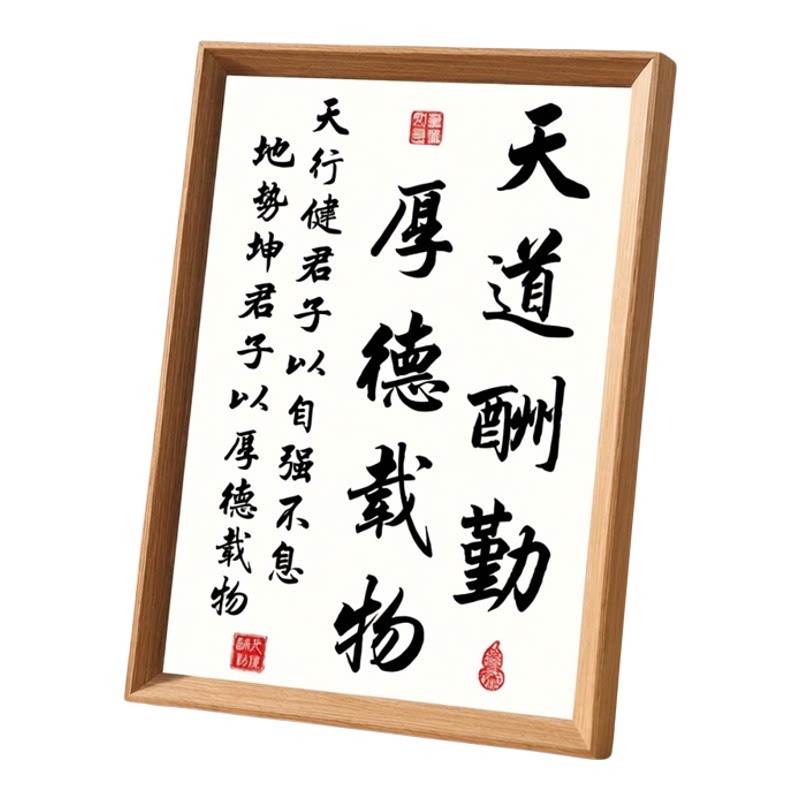 天道酬勤
厚德载物
天行健君子以自强不息
地势坤君子以厚德载物